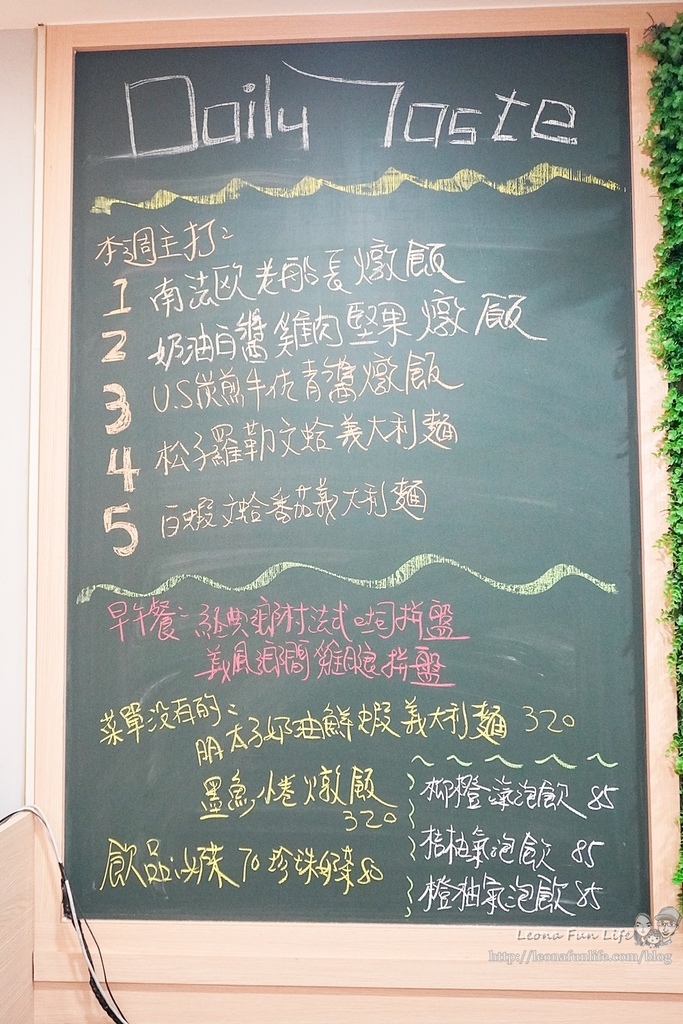 Daily Taste
本週主打:
1 南法歐老船長燉飯
2 奶油白醬雞肉堅果燉飯
3 U.S炭煎牛佐青醬燉飯
4 松子羅勒文蛤義大利麵
5 白蝦文蛤番茄義大利麵
早午餐: 經典鄉村法式吐司拼盤
義風鄉間雞腿拼盤
菜單沒有的:
明太子奶油鮮蝦義大利麵 320
墨魚小卷燉飯
320
飲品:奶茶 70 珍珠奶茶 80
柳橙氣泡飲 85
桔柚氣泡飲 85
橙柚氣泡飲 85
Leona Fun Life
http://leonafunlife.com/blog